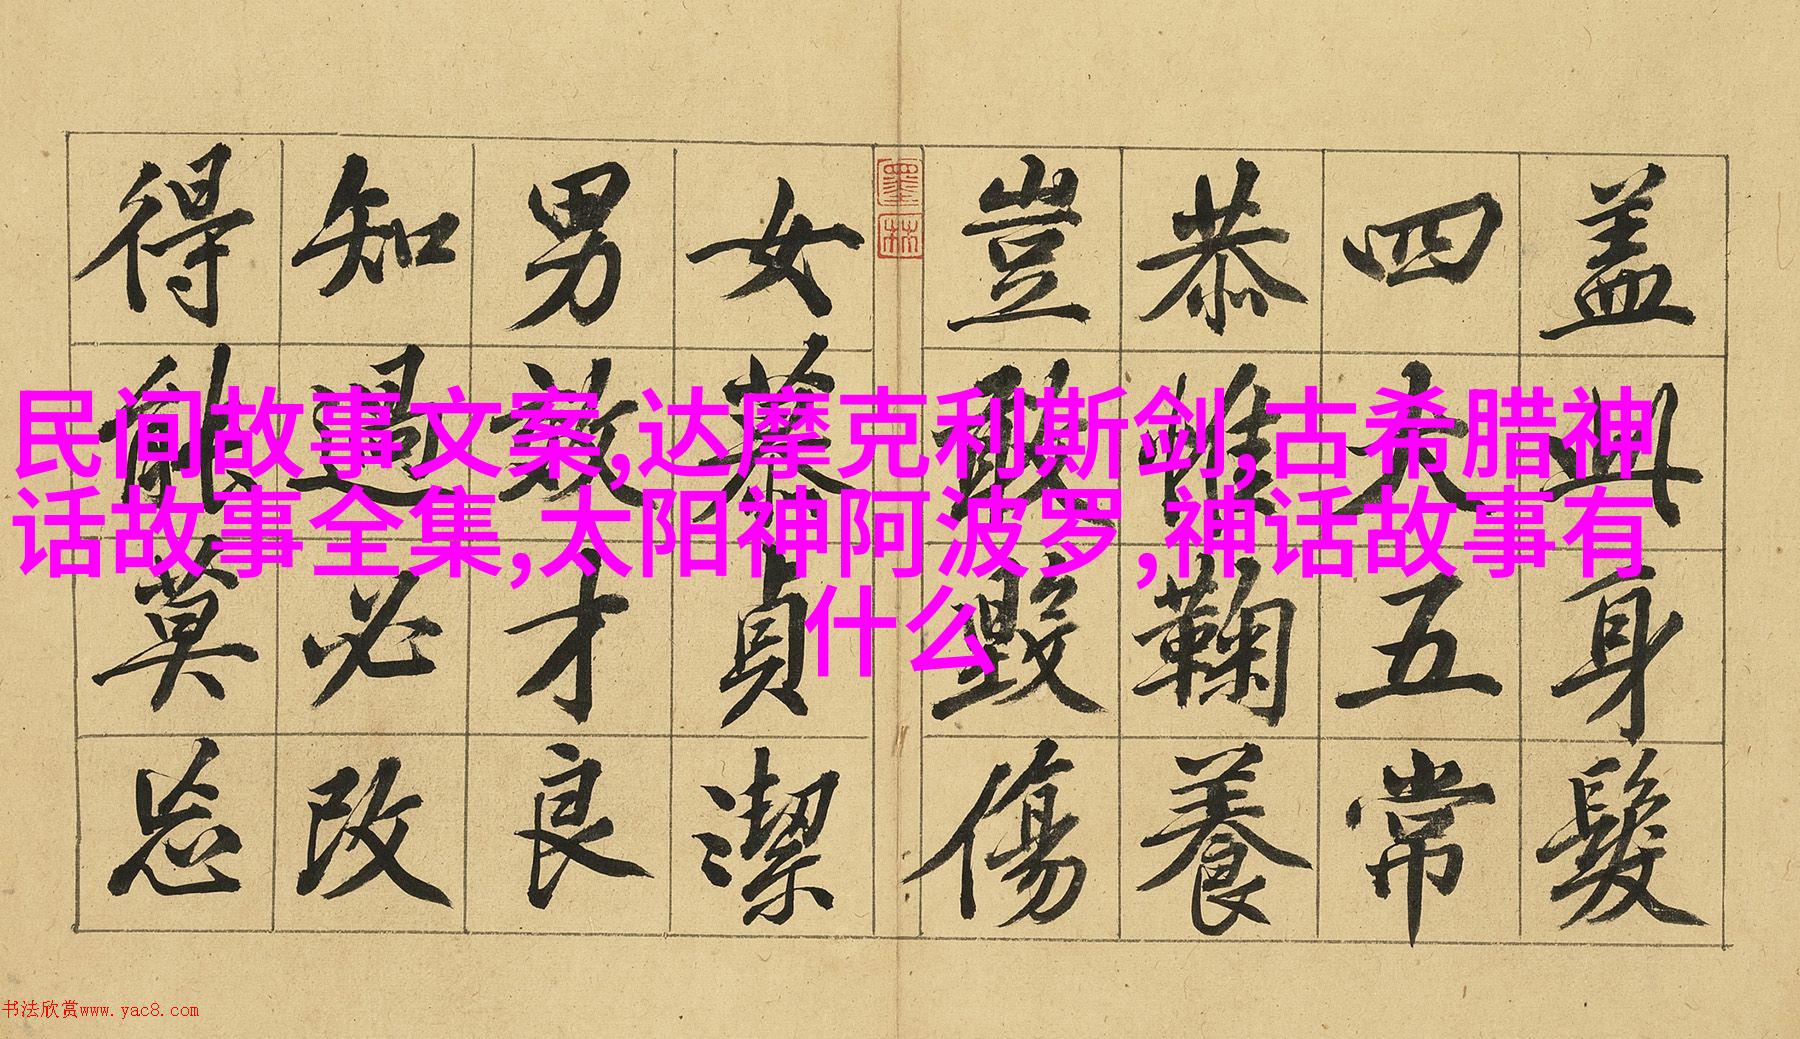 盖此身髮
四大五常
恭惟鞠養
豈敢毀傷
墨林
女慕貞潔
男效才良
知過必改
得能莫忘
民间故事文案,达摩克利斯剑,古希腊神
话故事全集,太阳神阿波罗,神话故事有
什么
书法欣赏www.yac8.com